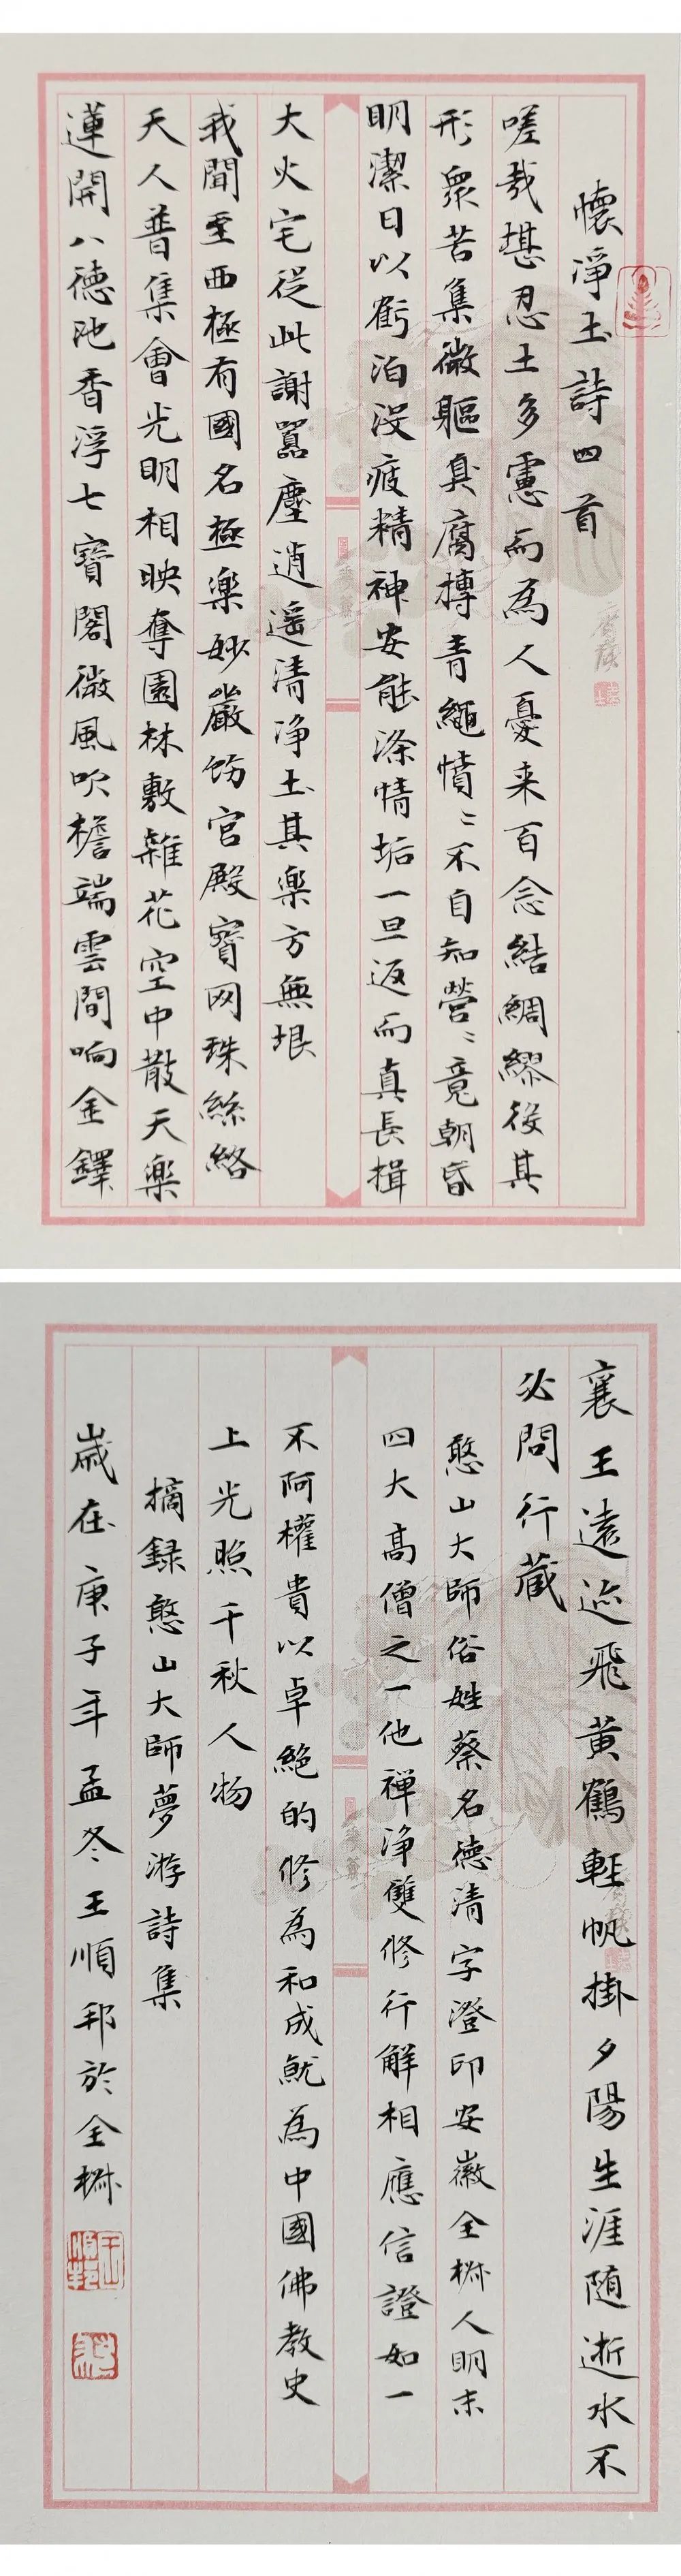 懷淨土詩四首
嗟哉堪忍土多慮而為人憂来百念結綢繆役其
形衆苦集微軀臭腐摶青繩憤〻不自知營〻竟朝昏
明潔日以虧泊没疲精神安能滌情垢一旦返而真長揖
大火宅從此謝囂塵逍遥清净土其樂方無垠
我聞至西極有國名極樂妙嚴飭宫殿寶网珠絲絡
天人普集會光明相映奪園林敷雜花空中散天樂
蓮開八德池香浮七寶閣微風吹檐端雲間响金鐸
襄王遠迹飛黄鶴輕帆掛夕陽生涯随逝水不
必問行藏
憨山大師俗姓蔡名德清字澄印安徽全椒人明末
四大高僧之一他禅净雙修行解相應信證如一
不阿權貴以卓絶的修為和成就為中國佛教史
上光照千秋人物
摘録憨山大師夢游詩集
歲在庚子年孟冬王順邦於全椒